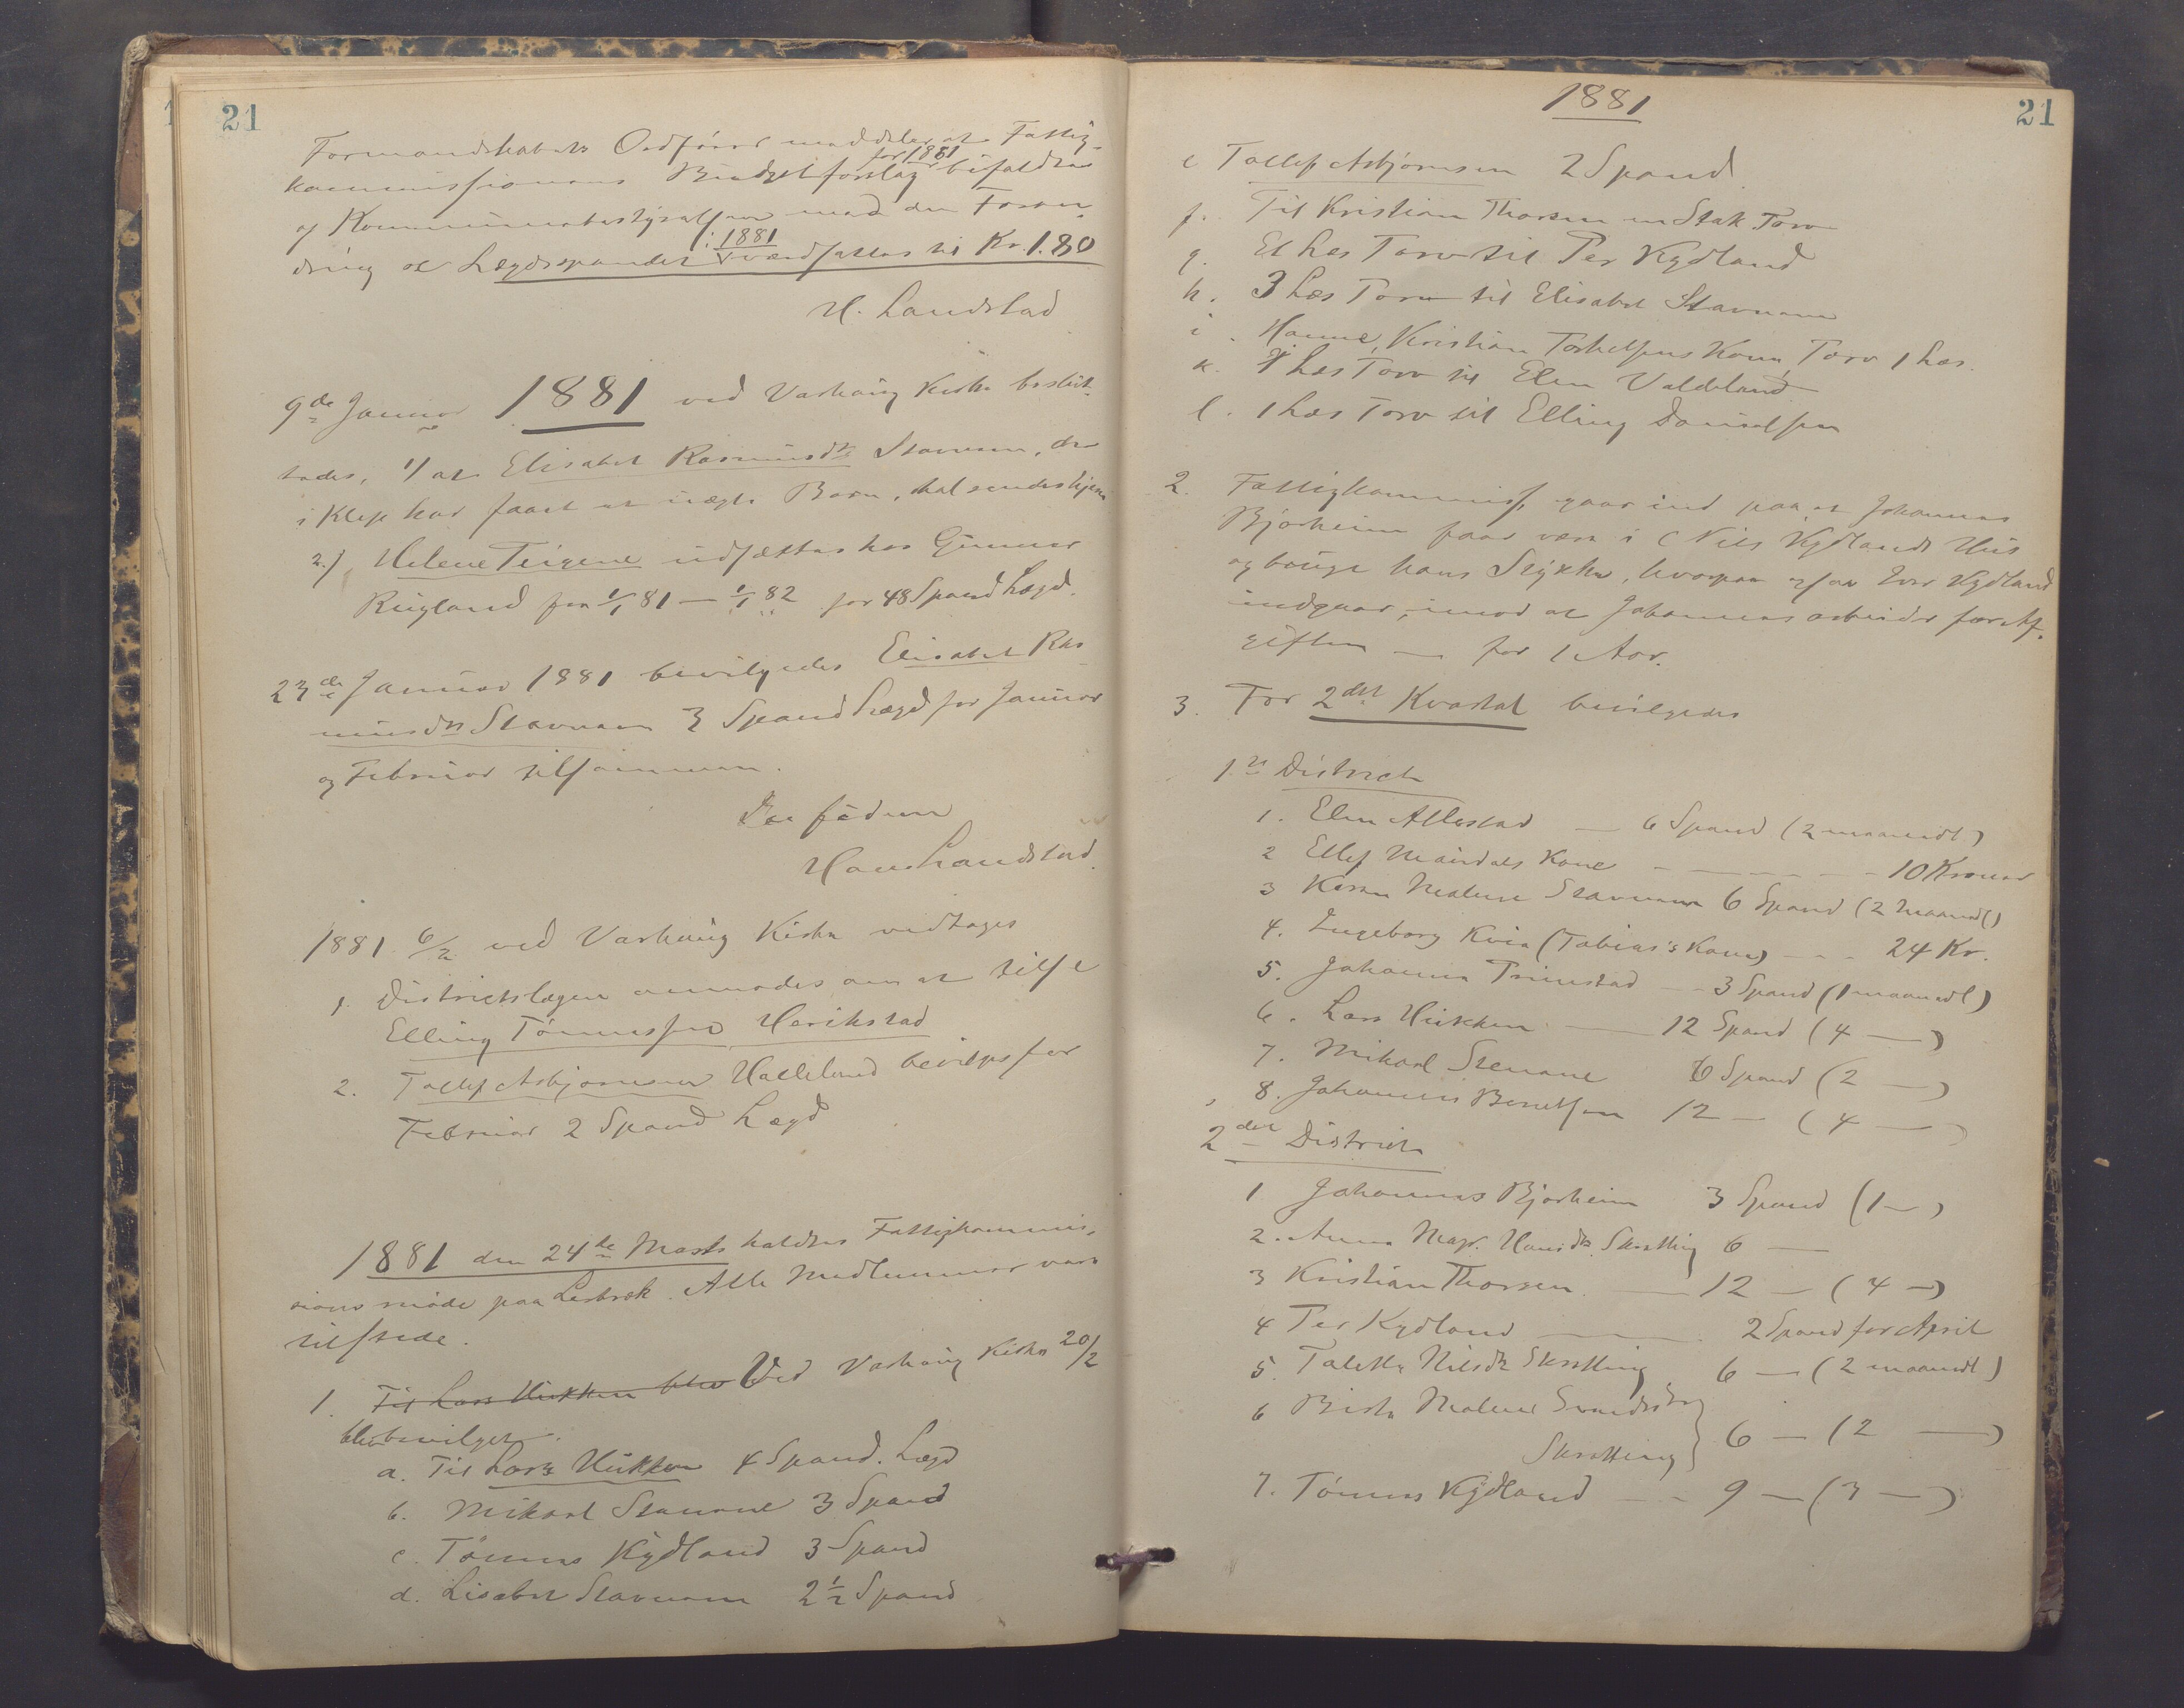 21
Formandskabets Ordfører meddeler at Fattig-
kommissionens Budgetforslag for 1881 bifaldtes
af Kommunebestyrelsen med den Foran-
dring at Lægdsspandet i 1881 værdsattes til Kr. 1.80
H. Landstad
9de Januar 1881 ved Varhaug Kirke beslut-
tedes, 1/ at Elisabet Rasmusdtr Stavnem, der
i Klep har faaet et uægte Barn, skal sendes hjem
2.) Helene Teigene udsættes hos Gunnar
Rugland fra 1/1 81 — 1/1 82 for 48 Spand Lægd.
23de Januar 1881 bevilgedes Elisabet Ras
musdtr Stavnem 3 Spand Lægd for Januar
og Februar tilsammen.
Hans Landstad.
1881 6/2 ved Varhaug Kirke vedtages
1. Districtslægen anmodes om at tilse
Elling Tønnessen Herikstad
2. Tollef Asbjørnsen Halleland bevilges for
Februar 2 Spand Lægd
1881 den 24de Marts holdtes Fattigkommis-
sions møde paa Lerbrek. Alle Medlemmer vare
tilstede.
1. Til Lars Hukken blev Ved Varhaug Kirke 20/2
blev bevilget.
a. Til Lars Hukken 4 Spand. Lægd
b. Mikael Stenane 3 Spand
c. Tønnes Kydland 3 Spand
d. Lisabet Stavnem 2 1/2 Spand
1881
21
e Tollef Asbjørnsen 2 Spand
f. Til Kristian Thorsen en Stak Torv
g. Et Læs Torv til Per Kydland
h. 3 Læs Torv til Elisabet Stavnem
i. Hanne, Kristian Torkelsens Kone, Torv 1 Læs.
k. 1 Læs Torv til Elen Valdeland
l. 1 Læs Torv til Elling Danielsen
2. Fattigkommiss. gaar ind paa at Johannes
Bjorheim faar være i Nils Kydlands Hus
og bruge hans Stykke, hvorpaa ogsaa Iver Kydland
indgaar, imod at Johannes arbeider for Af-
giften — for 1 Aar.
3. For 2det Kvartal bevilgedes
1ste District
1. Elen Allestad — 6 Spand (2 maanedl)
2 Ellef Maudals Kone — 10 Kroner
3 Karen Malene Stavnem 6 Spand (2 maanedl)
4. Ingeborg Kvia (Tobias's Kone) - - - 24 Kr.
5. Johanna Primstad — 3 Spand (1 maanedl)
6. Lars Hukken — 12 Spand (4 —)
7. Mikael Stenane 6 Spand (2 —)
8. Johannes Berntsen 12 — (4 —)
2det District
1 Johannes Bjorheim 3 Spand (1 —)
2. Anna Magr. Hansdtr. Skretting 6 —
3 Kristian Thorsen — 12 — (4 —)
4 Per Kydland — 2 Spand for April
5. Talette Nilsdtr Skretting 6 — (2 maanedl)
6 Berte Malene
Skretting } 6 — (2 —)
7. Tønnes Kydland — 9 — (3 —)